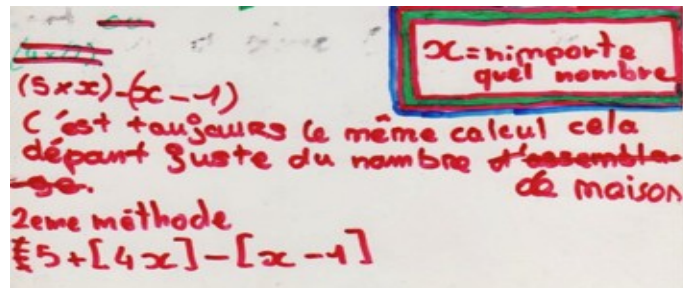 x = nimporte
quel nombre
(5 × x) - (x - 1)
C'est toujours le même calcul cela
dépant juste du nombre d'assembla-
ge.
de maison
2eme méthode
5 + [4x] - [x - 1]